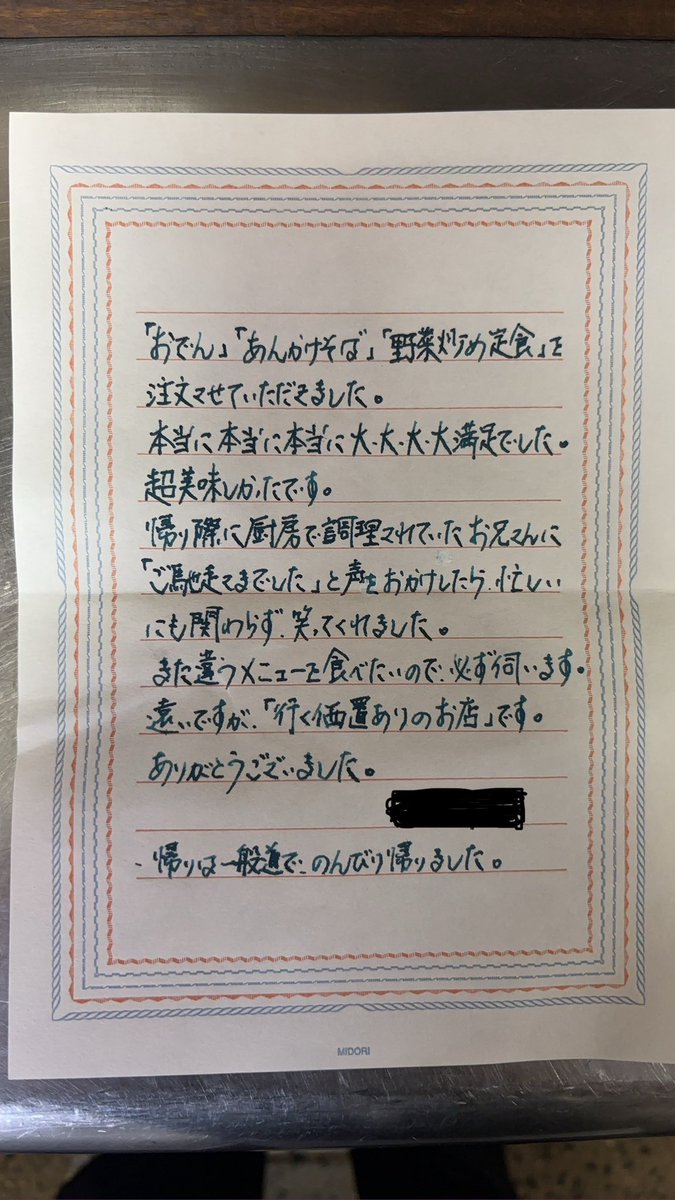 「おでん」「あんかけそば」「野菜炒め定食」を
注文させていただきました。
本当に本当に本当に大・大・大・大満足でした。
超美味しかったです。
帰り際に厨房で調理されていたお兄さんに
「ご馳走さまでした」と声をおかけしたら、忙しい
にも関わらず、笑ってくれました。
また違うメニューを食べたいので、必ず伺います。
遠いですが、「行く価置ありのお店」です。
ありがとうございました。
・帰りは一般道で、のんびり帰りました。
MIDORI